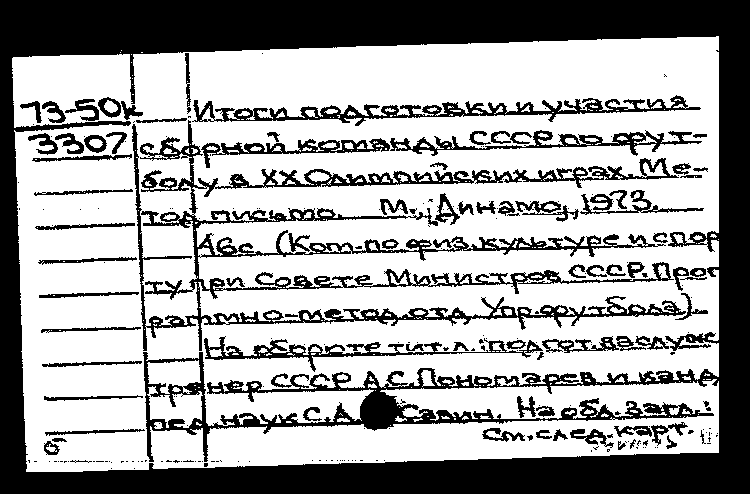 73-50к Итоги подготовки и участия
3307 сборной команды СССР по фут-
болу в XX Олимпийских играх. Ме-
тод. письмо. М., "Динамо", 1973.
46с. (Ком. по физ. культуре и спор
ту при Совете Министров СССР. Прог
раммно-метод. отд. Упр. футбола).
На обороте тит. л.: подгот. заслуж
тренер СССР А.С. Пономарев и канд
пед. наук С.А. Савин. На обл. загл.:
б см. след. карт.